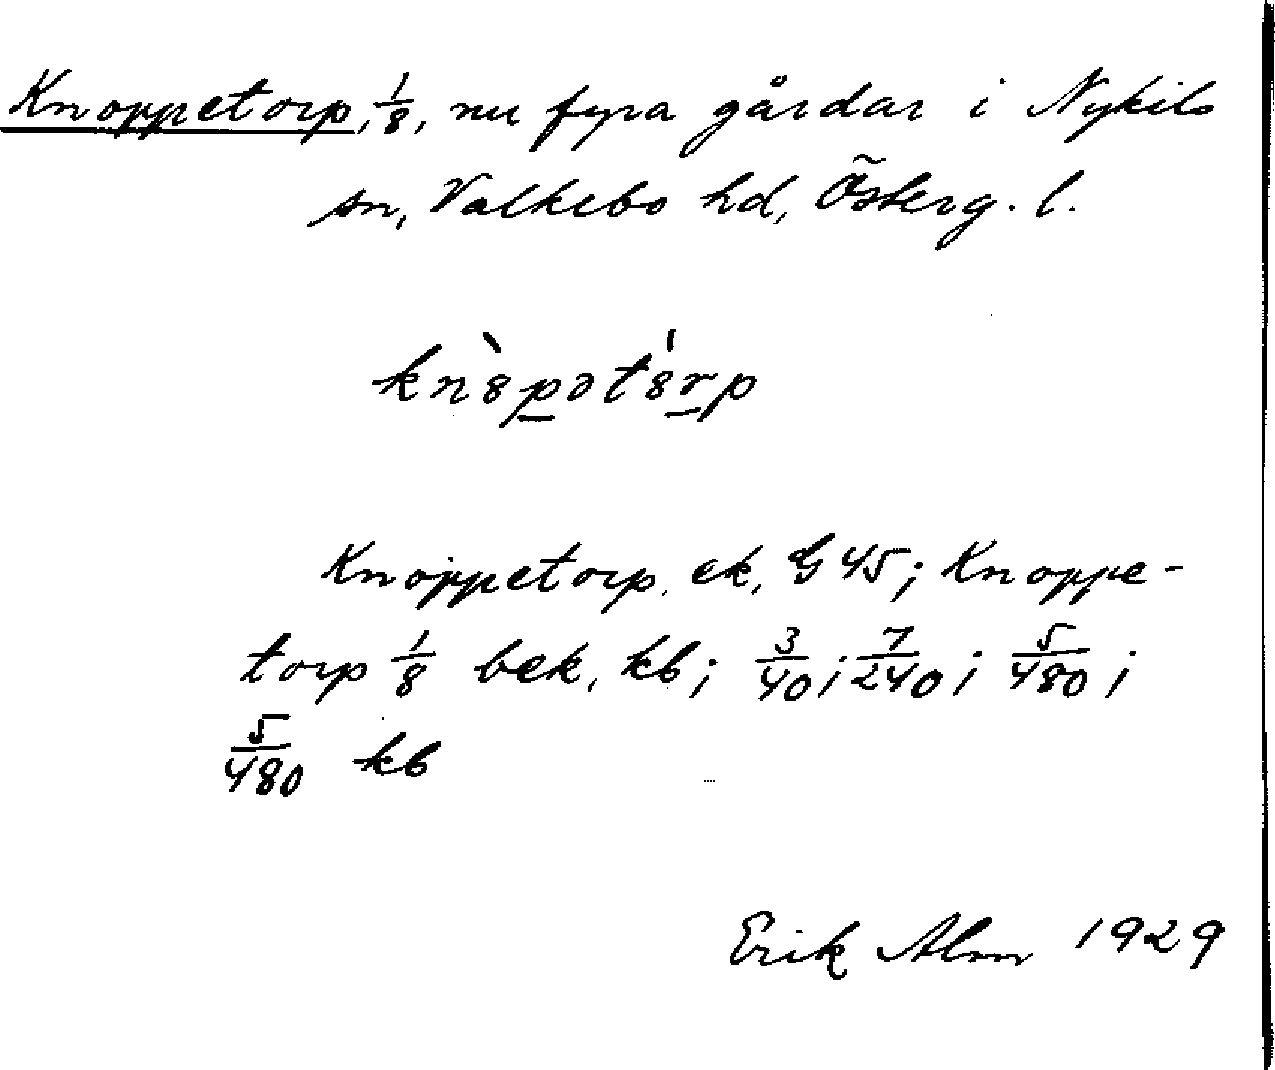 Knoppetorp, 1/8, nu fyra gårdar i Nykils
sn, Valkebo hd, Österg. l.
kn8̀pət8́rp
Knoppetorp, ek, G 45; Knoppe-
torp 1/8 bek, kb; 3/40; 7/240; 5/480;
5/480 kb
Erik Alm 1929